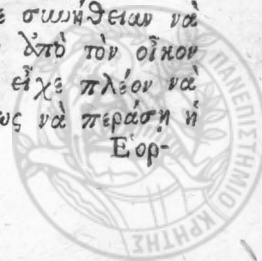 συνήθειαν νὰ
ἀπὸ τὸν οἶκον
εἶχε πλέον νὰ
νὰ περάσῃ ἡ
Ἑορ-
ΠΑΝΕΠΙΣΤΗΜΙΟ ΚΡΗΤΗΣ